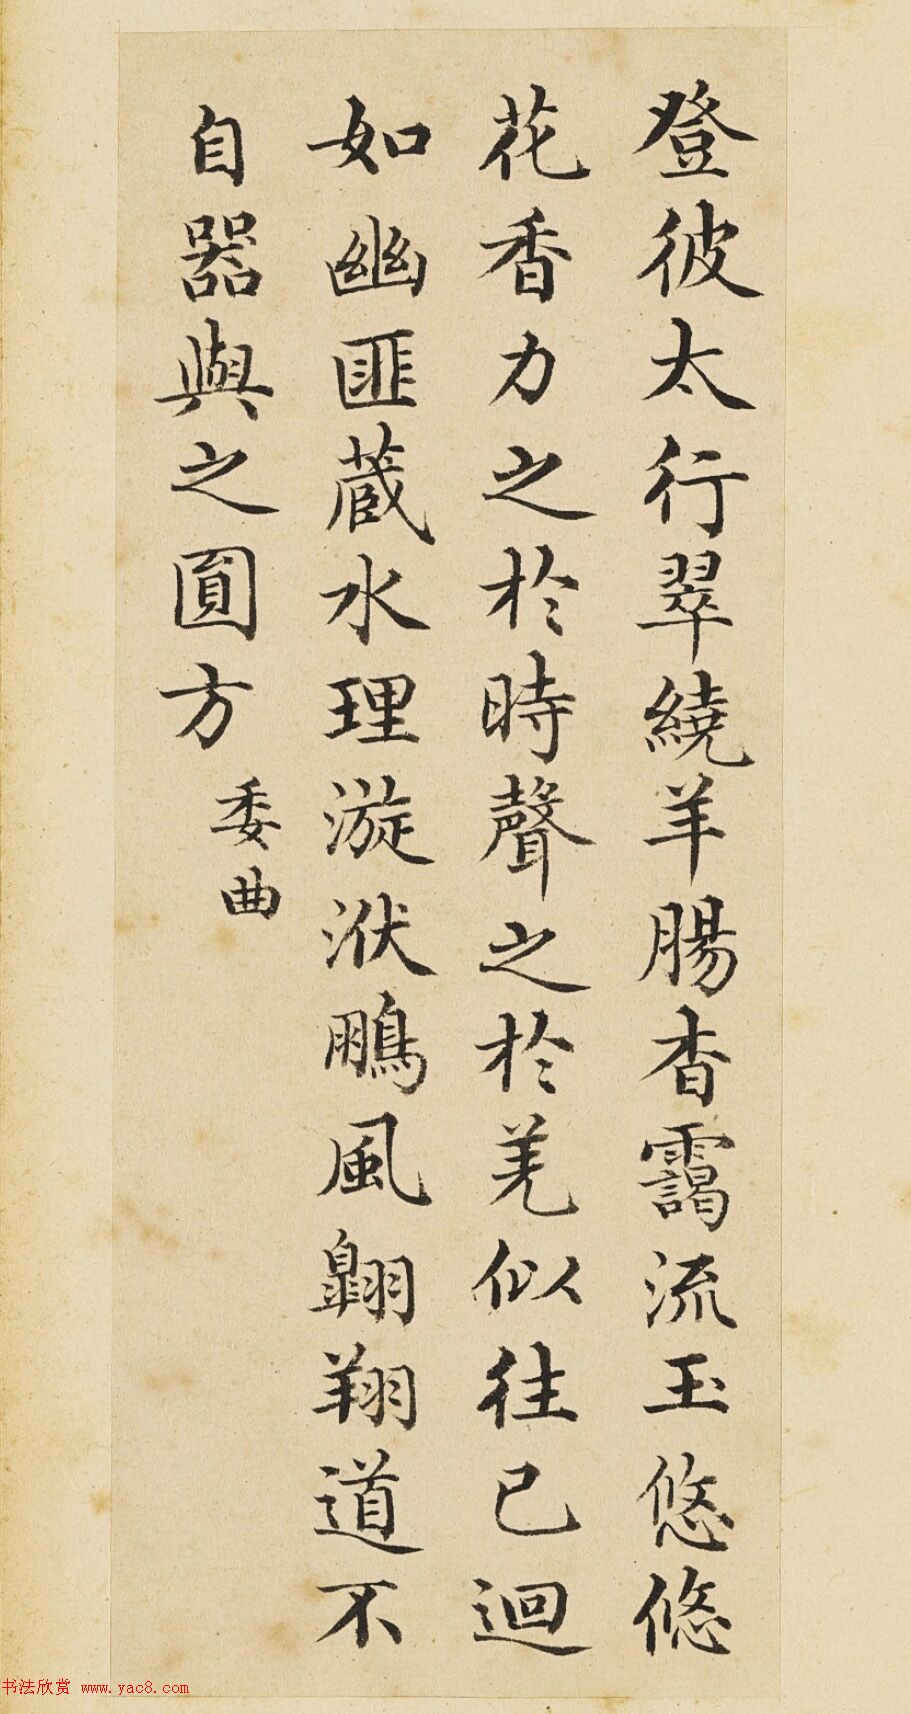 登彼太行翠繞羊腸杳靄流玉悠悠
花香力之於時聲之於羌似往已迴
如幽匪蔵水理漩洑鵬風翺翔道不
自器與之圓方
委曲
书法欣赏 www.yac8.com